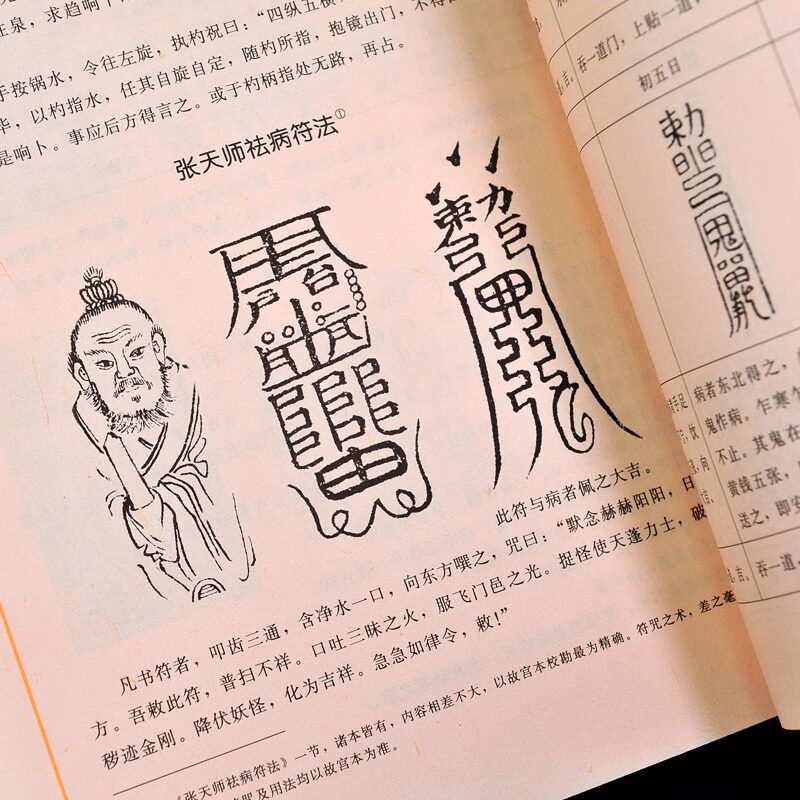 往泉，求趋响卜
手按锅水，令往左旋，执杓祝曰：“四纵五横，
华，以杓指水，任其自旋自定，随杓所指，抱镜出门，不得
是响卜。事应后方得言之。或于杓柄指处无路，再占。
张天师祛病符法①
此符与病者佩之大吉。
凡书符者，叩齿三通，含净水一口，向东方噀之，咒曰：“默念赫赫阳阳，日
方。吾敕此符，普扫不祥。口吐三昧之火，服飞门邑之光。捉怪使天蓬力士，破
秽迹金刚。降伏妖怪，化为吉祥。急急如律令，敕！”
《张天师祛病符法》一节，诸本皆有，内容相差不大，以故宫本校勘最为精确。符咒之术，差之毫
符咒及用法均以故宫本为准。
吉。吞一道门，上贴一道，
初五日
病者东北得之，
鬼作病。乍寒
不止。其鬼在
黄钱五张，
送之，即安
吉。吞一道，